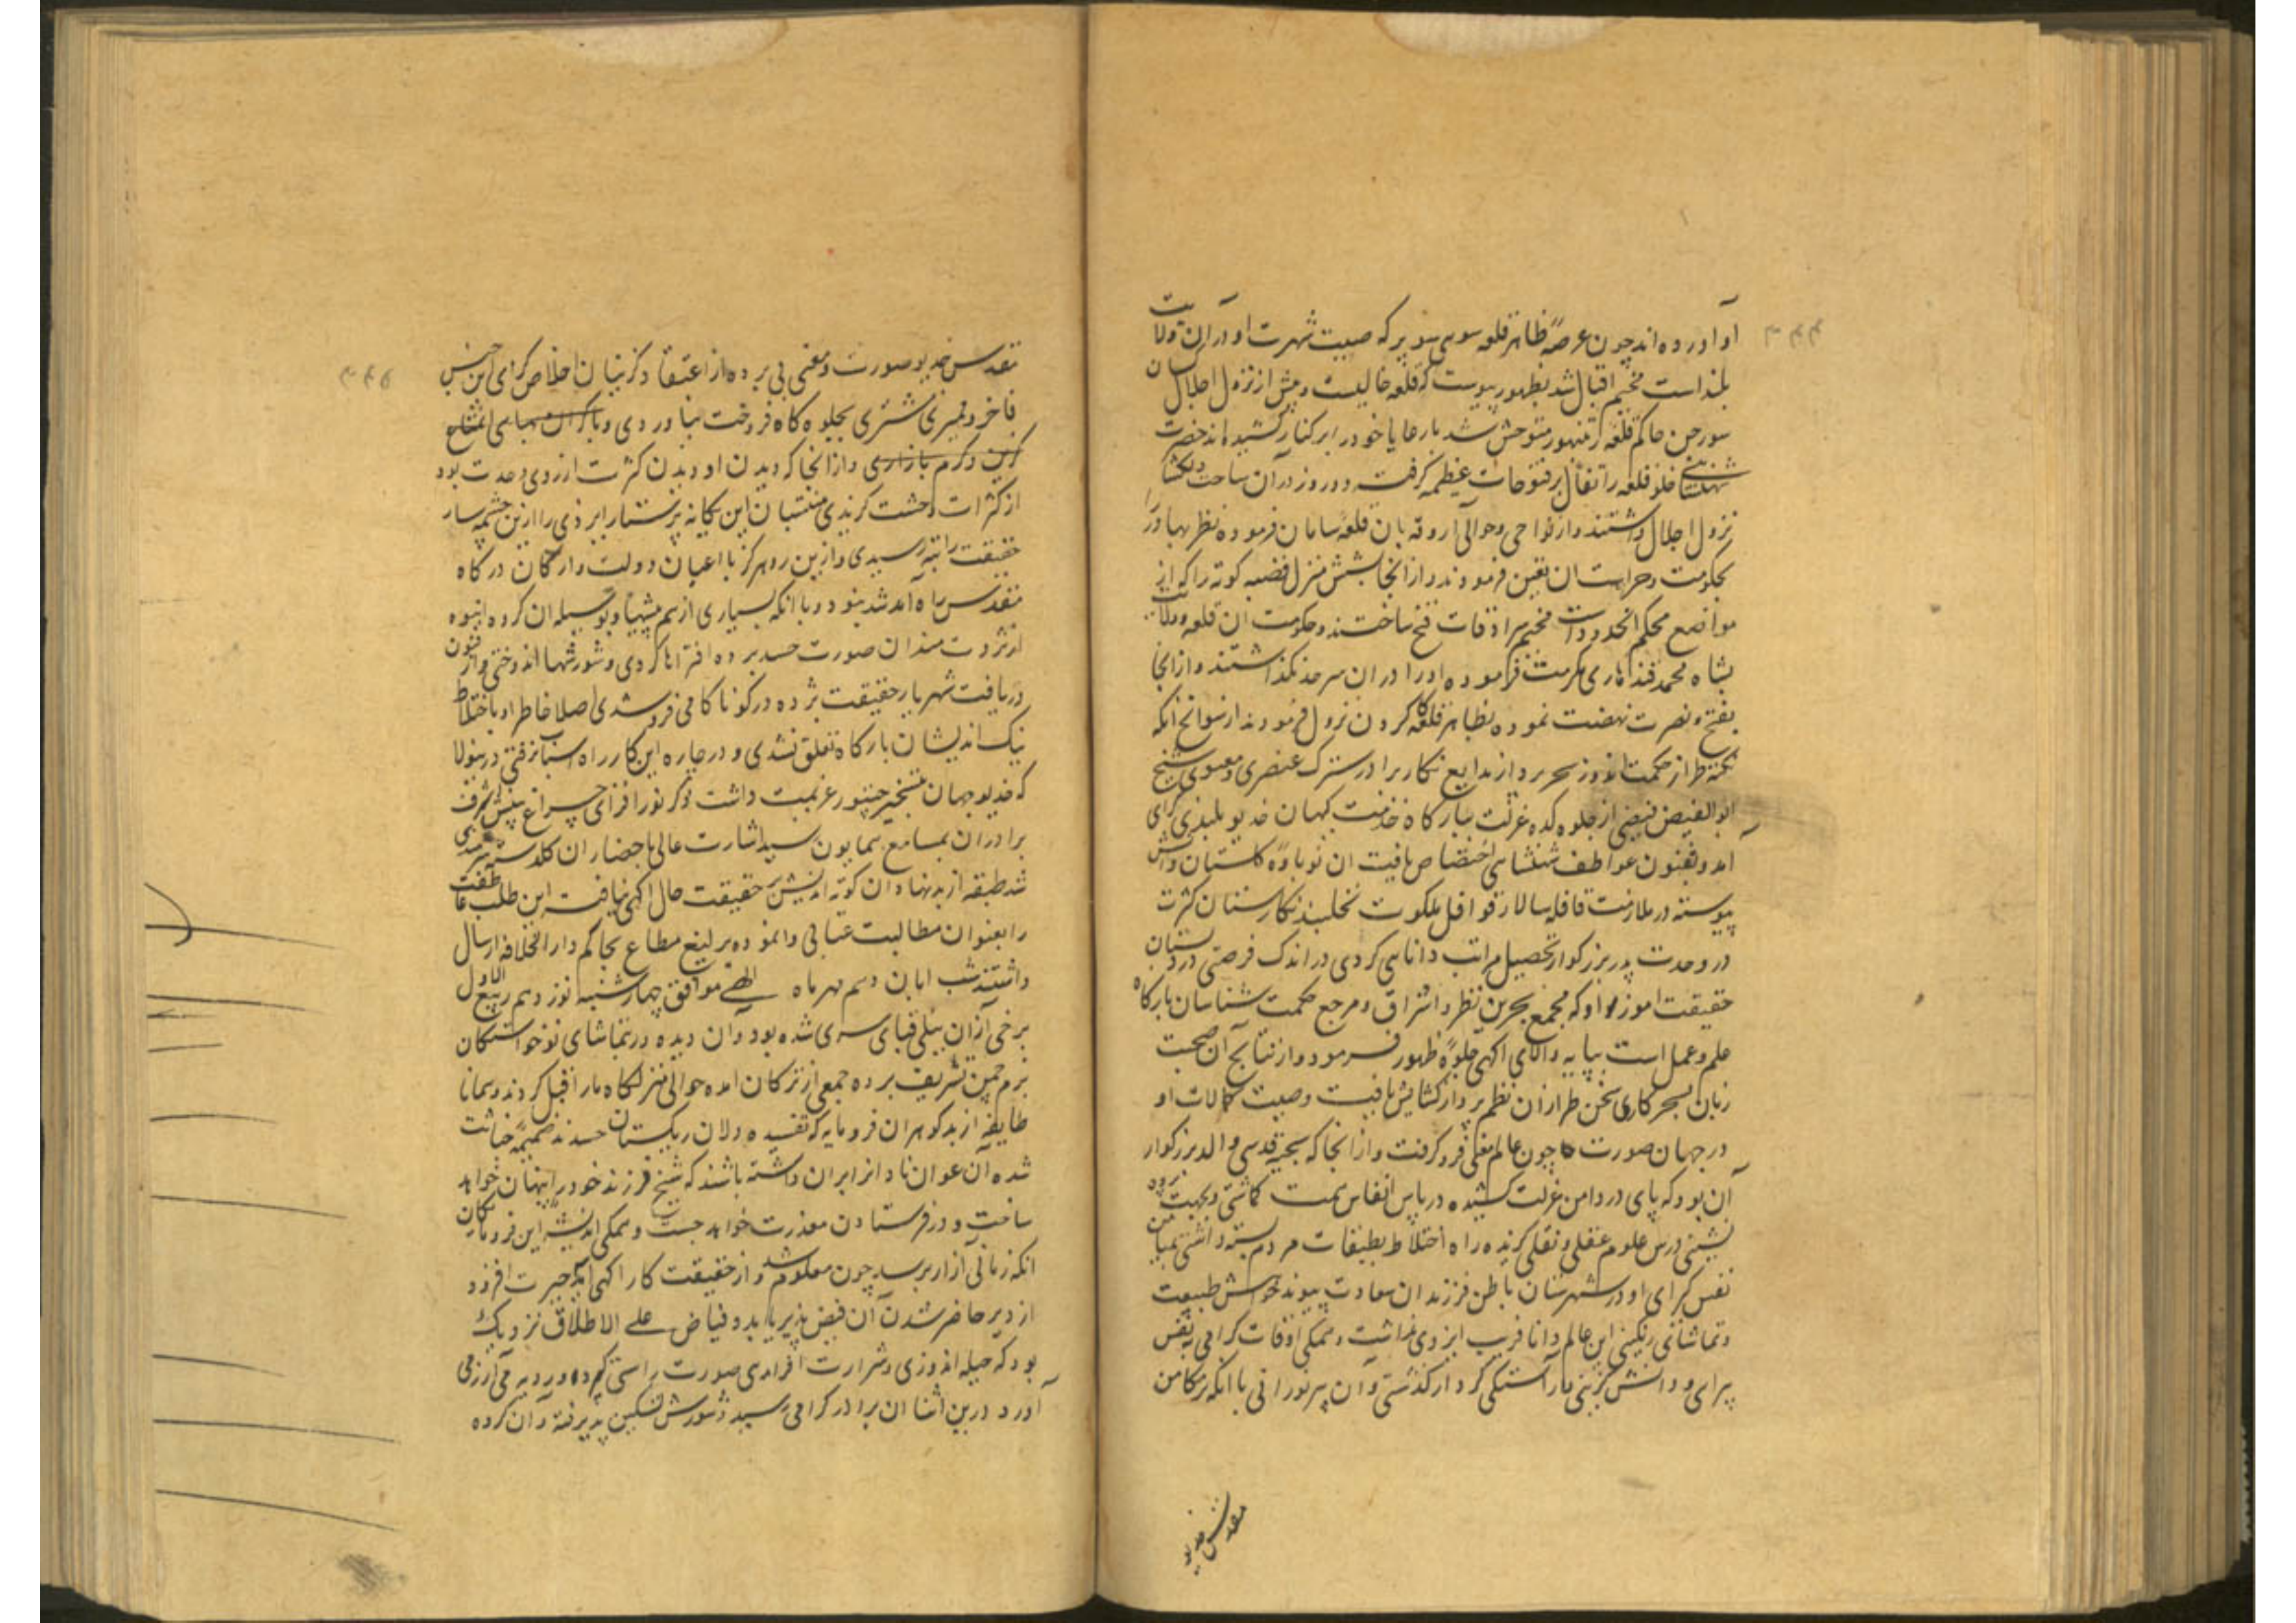 او آورده اند چون عرصهٔ ظاهر قلعه سوی سوپر که صیت شهرت او در آن ولایت
بلند است مخیم اقبال شد بظهور پیوست که قلعه خالیست و پیش از نزول اجلال
سورجن حاکم قلعه متوحش شد با رعایا خود را بر کنار کشیده اند حضرت
شهنشاهی خلو قلعه را تفأل بر فتوحات عظیمه گرفته دو روز در آن ساحت دلکشا
نزول اجلال داشتند و از نواحی و حوالی آزوقه بان قلعه سامان فرموده نظر بهادر را
بحکومت و حراست ان تعین فرمودند و از انجا بشش منزل قصبه کوته را که از
مواضع محکم انحدود است مخیم سرادقات فتح ساختند و حکومت ان قلعه و ولایت
بشاه محمد قندهاری مکرمت فرموده او را در ان سرحد بگذاشتند و از انجا
بفتح و نصرت نهضت نموده بظاهر قلعه کاکرون نزول فرمودند از سوانح انکه
نکته طراز حکمت اندوز سحر پرداز بدایع نگار برادر سترک عنصری و معنوی شیخ
ابو الفیض فیضی از جلوه کده عزلت ببارگاه خدمت کیهان خدیو بلندی گرای
آمد و بفنون عواطف شهنشاهی اختصاص یافت ان نوباوه گلستان دانش
پیوسته در ملازمت قافله سالار قوافل ملکوت نخلبند نگارستان کثرت
در وحدت پدر بزرگوار تحصیل مراتب دانایی کردی در اندک فرصتی در دبستان
حقیقت اموز او که مجمع بحرین نظر و اشراق و مرجع حکمت شناسان بارگاه
علم و عمل است بپایه والای اگهی جلوهٔ ظهور فرمود و از نتایج آن صحبت
زبان بسحر کاری سخن طرازان نظم پرداز گشایش یافت و صیت کمالات او
در جهان صورت چون عالم معنی فرو گرفت و از انجا که سجیه قدسی والد بزرگوار
آن بود که پای در دامن عزلت کشیده در پاس انفاس همت گماشتی و بجهت پرده
نشینی درس علوم عقلی و نقلی گزیده راه اختلاط بطبقات مردم بسته داشتی بمیامن
نفس گرای او در شهرستان باطن فرزندان سعادت پیوند خواهش طبیعت
و تماشای رنگینی این عالم دانا فریب ایزدی نداشت و همگی اوقات گرامی به نفس
پیرای و دانش گزینی باراستگی کردار گذشتی و آن پیر نورانی با انکه بر مکامن
مقدس خدیو
مقدس خدیو صورت و معنی پی برده از اعتقاد گزینان اخلاص گرای این جنس
فاخر و نمیری مشتری بجلوه گاه فروخت نیاوردی و با گران بهای امتناع
گزین و گرم بازاری و از انجا که دیدن او دیدن کثرت از روی وحدت بود
از کثرات وحشت گزیدی منتسبان این یگانه پرستار ایزدی را ازین چشمه سار
حقیقت راتبه رسیدی و ازین رو هرگز با اعیان دولت و ارکان درگاه
مقدس راه آمد شد نبود و با انکه بسیاری از هم پیشها و بوسیله ان گروه انبوه
از ثروت مندان صورت حسد برده افتراها کردی و شورشها اندوختی و از فنون
دریافت شهریار حقیقت پژوه در گو ناکامی فرو شدی اصلا خاطر او باختلاط
نیک اندیشان بارگاه تعلق نشدی و در چاره این کار راه اسباب نرفتی درینولا
که خدیو جهان بتسخیر چیتور عزیمت داشت ذکر نور افزای چراغ بینش اشرف
برادران بمسامع همایون رسید اشارت عالی باحضار ان گلدسته سرمدی
شد طبقه از بدنهادان کوته اندیش حقیقت حال اگهی نیافته این طلب عاطفت
را بعنوان مطالبت عتابی وانموده یرلیغ مطاع بحاکم دار الخلافه ارسال
داشتند شب ابان دهم مهر ماه الهی موافق چهارشنبه نوزدهم ربیع الاول
برخی ازان نیلی قبای سپری شده بود و آن دیده در بتماشای نو خواستگان
بزم چمن تشریف برده جمعی از ترکان امده حوالی منزلگاه ما را قبل کردند و همانا
طایفه از بدگوهران فرومایه که تفسیده دلان ریگستان حسدند ضمیمهٔ خباثت
شده آن عوانان را بران داشته باشند که شیخ فرزند خود را پنهان خواهد
ساخت و در فرستادن معذرت خواهد جست و همگی اندیشهٔ این فرومایگان
انکه زمانی آزار برسد چون معلوم شد و از حقیقت کار اگهی آمد حیرت افزود
از دیر حاضر شدن آن فیض پذیر یابد و فیاض علی الاطلاق نزدیک
بود که حیله اندوزی و شرارت افزای صورت راستی گیرد و رو به می آزرمی
آورد درین اثنا ان برادر گرامی رسید و شورش تسکین پذیرفته و ان گروه